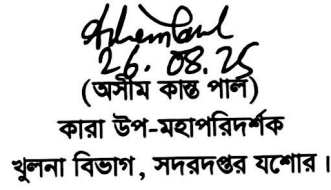 26.08.25
(অসীম কান্ত পাল)
কারা উপ-মহাপরিদর্শক
খুলনা বিভাগ, সদরদপ্তর যশোর।